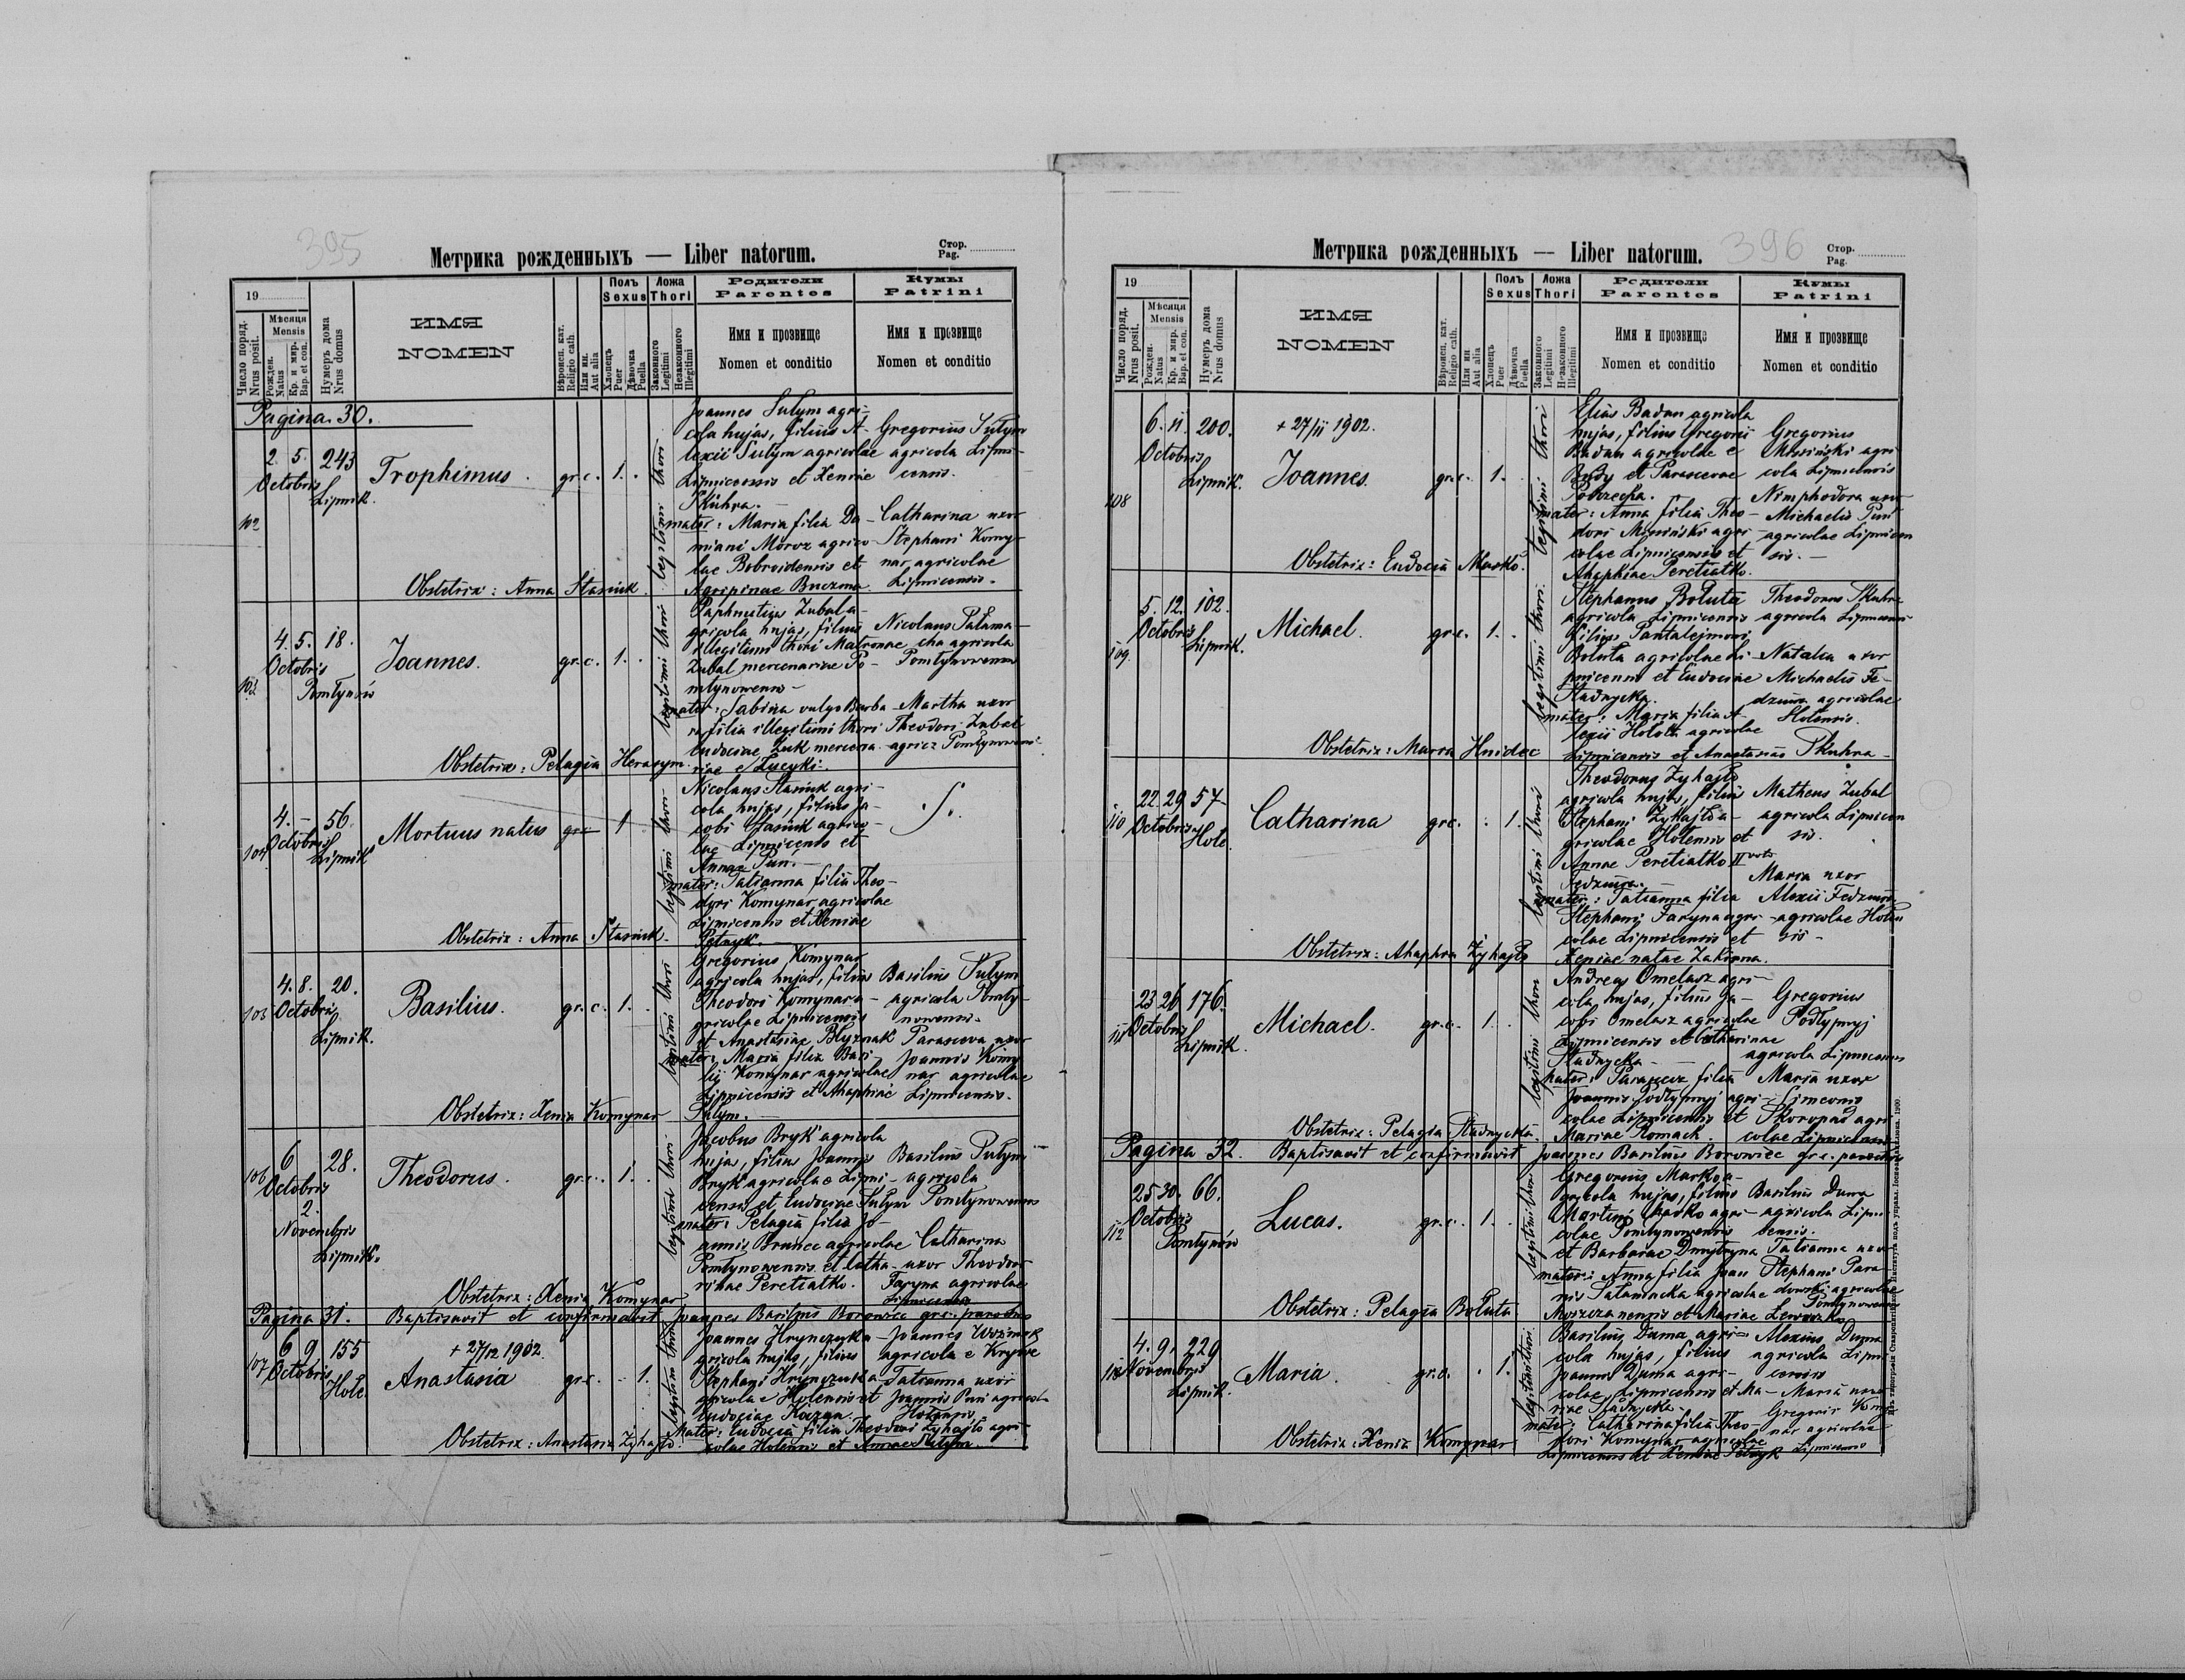 395
Метрика рожденныхъ — Liber natorum.
Стор.
Pag.
19
Число поряд.
Nrus posit.
Мѣсяця
Mensis
Рожден.
Natus
Кр. и мир.
Bap. et con.
Нумеръ дома
Nrus domus
ИМЯ
NOMEN
Вѣроисп. кат.
Religio cath.
Или ин.
Aut alia
Полъ
Sexus
Хлопецъ
Puer
Дѣвочка
Puella
Ложа
Thori
Законного
Legitimi
Незаконного
Illegitimi
Родители
Parentes
Имя и прозвище
Nomen et conditio
Кумы
Patrini
Имя и прозвище
Nomen et conditio
Pagina 30.
102
2. 5. 243
Octobris
Lipnik.
Trophimus.
gr. c. 1.
legitimi thori
Joannes Sulym agri-
cola hujas, filius A-
lexii Sulym agricolae
Lipnicensis et Xeniae
Skuhra.
mater: Maria filia Da-
miani Moroz agrico-
lae Bobroidensis et
Agripinae Buczma.
Gregorius Sulym
agricola Lipni-
censis.
Catharina uxor
Stephani Komy-
nar agricolae
Lipnicensis.
Obstetrix: Anna Stasiuk.
103
4. 5. 18.
Octobris
Pomłynów
Joannes.
gr. c. 1.
legitimi thori
Paphnutius Zubal a-
gricola hujas, filius
illegitimi thori Matronae
Zubal mercenariae Po-
mlynowensis
mater: Sabina vulgo Barba-
ra filia illegitimi thori
Eudociae Zuk mercena-
riae e Lucyki.
Nicolaus Palama-
cha agricola
Pomłynowensis
Martha uxor
Theodori Zubal
agric. Pomłynowensi
Obstetrix: Pelagia Herasym.
104
4. - 56.
Octobris
Lipnik
Mortuus natus
gr. c. 1
legitimi thori
Nicolaus Stasiuk agri-
cola hujas, filius Ja-
cobi Stasiuk agrico-
lae Lipnicensis et
Annae Pun.
mater: Tatianna filia Theo-
dori Komynar agricolae
Lipnicensis et Xeniae
Petryk.
Obstetrix: Anna Stasiuk.
105
4. 8. 20.
Octobris
Lipnik.
Basilius.
gr. c. 1.
legitimi thori
Gregorius Komynar
agricola hujas, filius
Theodori Komynar a-
gricolae Lipnicensis
et Anastasiae Blyznak
mater: Maria filia Basi-
lii Komynar agricolae
Lipnicensis et Ahaphiae
Sulym.
Basilius Sulym
agricola Pomły-
nowensis.
Parasceva uxor
Joannis Komy-
nar agricolae
Lipnicensis.
Obstetrix: Xenia Komynar
106
6 28.
Octobris
2.
Novembris
Lipnik.
Theodorus.
gr. c. 1.
legitimi thori
Jacobus Bryk agricola
hujas, filius Joannis
Bryk agricolae Lipni-
censis et Eudociae Sulym
mater: Pelagia filia Jo-
annis Bruncc agricolae
Pomłynowensis et Catha-
rinae Peretiatko.
Basilius Sulym
agricola
Pomłynowensis
Catharina
uxor Theodor
Faryna agricolae
Lipnicensis
Obstetrix: Xenia Komynar
Pagina 31. Baptisavit et confirmavit Joannes Basilius Borowiec gr. c. parochus
107
6 9 155
Octobris
Hole.
+ 27/12 1902.
Anastasia
gr. c. 1.
legitimi thori
Joannes Hrynczyka-
gricola hujas, filius
Stephani Hrynczuka-
gricolae Holensis et
Eudociae Kaczan.
Mater: Eudocia filia Theodori Zyhajlo agri-
colae Holensis et Annae Sulym.
Joannes Woźniak
agricola e Krywe
Tatianna uxor
Joannis Pun agricol-
Holensis
Obstetrix: Anastasia Zyhajlo.
396
Метрика рожденныхъ — Liber natorum.
Стор.
Pag.
19
Число поряд.
Nrus posit.
Мѣсяця
Mensis
Рожден.
Natus
Кр. и мир.
Bap. et con.
Нумеръ дома
Nrus domus
ИМЯ
NOMEN
Вѣроисп. кат.
Religio cath.
Или ин
Aut alia
Полъ
Sexus
Хлопецъ
Puer
Дѣвочка
Puella
Ложа
Thori
Законного
Legitimi
Незаконного
Illegitimi
Родители
Parentes
Имя и прозвище
Nomen et conditio
Кумы
Patrini
Имя и прозвище
Nomen et conditio
108
6. 11. 200.
Octobris
Lipnik.
+ 27/11 1902.
Joannes.
gr. c. 1.
legitimi thori
Elias Badan agricola
hujas, filius Gregorii
Badan agricolae e
Rudy et Parascevae
mater: Anna filia Theo-
dori Mysiński agri-
colae Lipnicensis et
Ahaphiae Peretiatko.
Gregorius
Mysiński agri
cola Lipnicensis
Nimphodora uxor
Michaelis Pun
agricolae Lipnicen
sis.
Obstetrix: Eudocia Marko.
109
5. 12. 102.
Octobris
Lipnik.
Michael.
gr. c. 1.
legitimi thori.
Stephanus Boluta
agricola Lipnicensis
filius Pantalejmoni
Boluta agricolae Li-
pnicensis et Eudociae
Stadnycka.
mater: Maria filia A-
lexii Holota agricolae
Lipnicensis et Anastasiae Skuhra
Theodorus Skuhra
agricola Lipnicensis
Natalia uxor
Michaelis Fe-
dzura agricolae
Holensis.
Obstetrix: Maria Hnidec
110
22 29 57
Octobris
Hole.
Catharina
gr. c. 1.
legitimi thori
Theodorus Zyhajlo
agricola hujas, filius
Stephani Zyhajlo a-
gricolae Holensis et
Annae Peretiatko II voto
Fedzura.
mater: Tatianna filia
Stephani Faryna agri-
colae Lipnicensis et
Xeniae natae Zalipna.
Matheus Zubal
agricola Lipnicen
sis.
Maria uxor
Alexii Fedzura
agricolae Holen
sis
Obstetrix: Ahaphia Zyhajlo
111
23 26 176.
Octobris
Lipnik.
Michael.
gr. c. 1.
legitimi thori
Andreas Omelasz agri-
cola hujas, filius Ja-
cobi Omelasz agricolae
Lipnicensis et Catharinae
Stadnycka
mater: Parasceva filia
Joannis Podłypnyj agri-
colae Lipnicensis et
Mariae Romach.
Gregorius
Podłypnyj
agricola Lipnicensis
Maria uxor
Simeonis
Skoropad agri
colae Lipnicensis
Obstetrix: Pelagia Stadnycka.
Pagina 32. Baptisavit et confirmavit Joannes Basilius Borowiec gr. c. parochus
112
25 30. 66.
Octobris
Pomłynów
Lucas.
gr. c. 1.
legitimi thori
Gregorius Marko a-
gricola hujas, filius
Martini Marko agri-
colae Pomłynowensis
et Barbarae Dmytryna
mater: Anna filia Joan
nis Salamacka agricolae
et Mariae
Basilius Duma
agricola Lipni
censis.
Tatianna uxor
Stephani Para
dowski agricolae
Pomłynowensis
Obstetrix: Pelagia Boluta
113
4. 9. 229
Novembris
Lipnik.
Maria.
gr. c. 1.
legitimi thori
Basilius Duma agri-
cola hujas, filius
Joannis Duma agri-
colae Lipnicensis et Ma-
riae Stadnycka.
mater: Catharina filia Theo-
dori Komynar agricolae
Lipnicensis et Xeniae Petryk
Alexius Duma
agricola Lipni
censis
Maria uxor
Gregorii Komy
nar agricolae
Lipnicensis
Obstetrix: Xenia Komynar